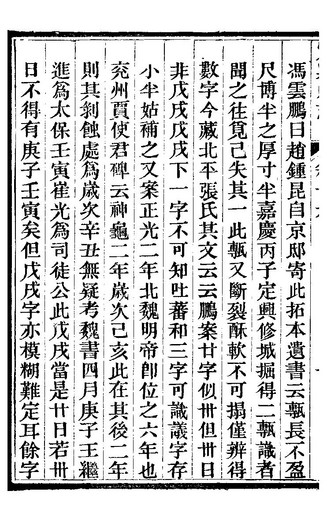 馮雲鵬曰趙鍾昆自京邸寄此拓本遺書云甎長不盈
尺博半之厚寸半嘉慶丙子定興修城掘得二甎識者
聞之往覓已失其一此甎又斷裂酥軟不可搨僅辨得
數字今藏北平張氏其文云云鵬案廿字似卌但卌日
非戊戌戊戌下一字不可知吐蕃和三字可識議字存
小半姑補之又案正光二年北魏明帝卽位之六年也
兖州賈使君碑云神龜二年歲次己亥此在其後二年
則其剝蝕處為歲次辛丑無疑考魏書四月庚子王繼
進為太保壬寅崔光為司徒公此戊戌當是廿日若卌
日不得有庚子壬寅矣但戊戌字亦模糊難定耳餘字